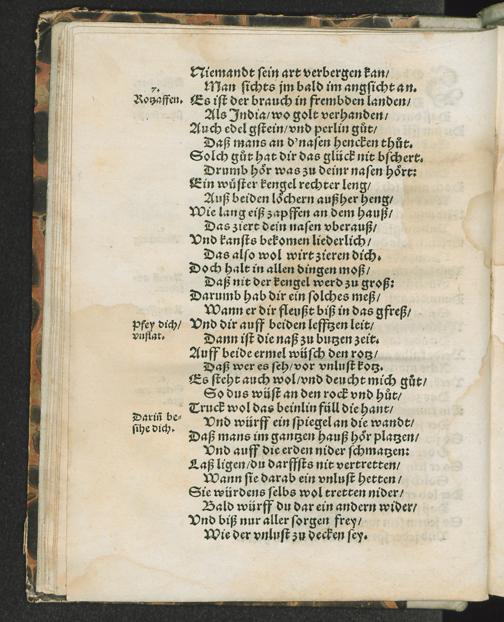 Niemandt sein art verbergen kan/
Man sichts jm bald im angsicht an.
7.
Rotzaffen.
Es ist der brauch in frembden landen/
Als India/ wo golt verhanden/
Auch edel gstein/ vnd perlin gůt/
Daß mans an d'nasen hencken thůt.
Solch gůt hat dir das glück nit bschert.
Drumb hör was zu deinr nasen hört:
Ein wüster kengel rechter leng/
Auß beiden löchern außher heng/
Wie lang eiß zapffen an dem hauß/
Das ziert dein nasen vberauß/
Vnd kansts bekomen liederlich/
Das also wol wirt zieren dich.
Doch halt in allen dingen moß/
Daß nit der kengel werd zu groß:
Darumb hab dir ein solches meß/
Wann er dir fleußt biß in das gfreß/
Pfey dich/
vnflat.
Vnd dir auff beiden lefftzen leit/
Dann ist die naß zu butzen zeit.
Auff beide ermel wüsch den rotz/
Daß wer es seh/ vor vnlust kotz.
Es steht auch wol/ vnd deucht mich gůt/
So dus wüst an den rock vnd hůt/
Truck wol das beinlin füll die hant/
Dariñ be-
sihe dich.
Vnd würff ein spiegel an die wandt/
Daß mans im gantzen hauß hör platzen/
Vnd auff die erden nider schmatzen:
Laß ligen/ du darffsts nit vertretten/
Wann sie darab ein vnlust hetten/
Sie würdens selbs wol tretten nider/
Bald würff du dar ein andern wider/
Vnd biß nur aller sorgen frey/
Wie der vnlust zu decken sey.